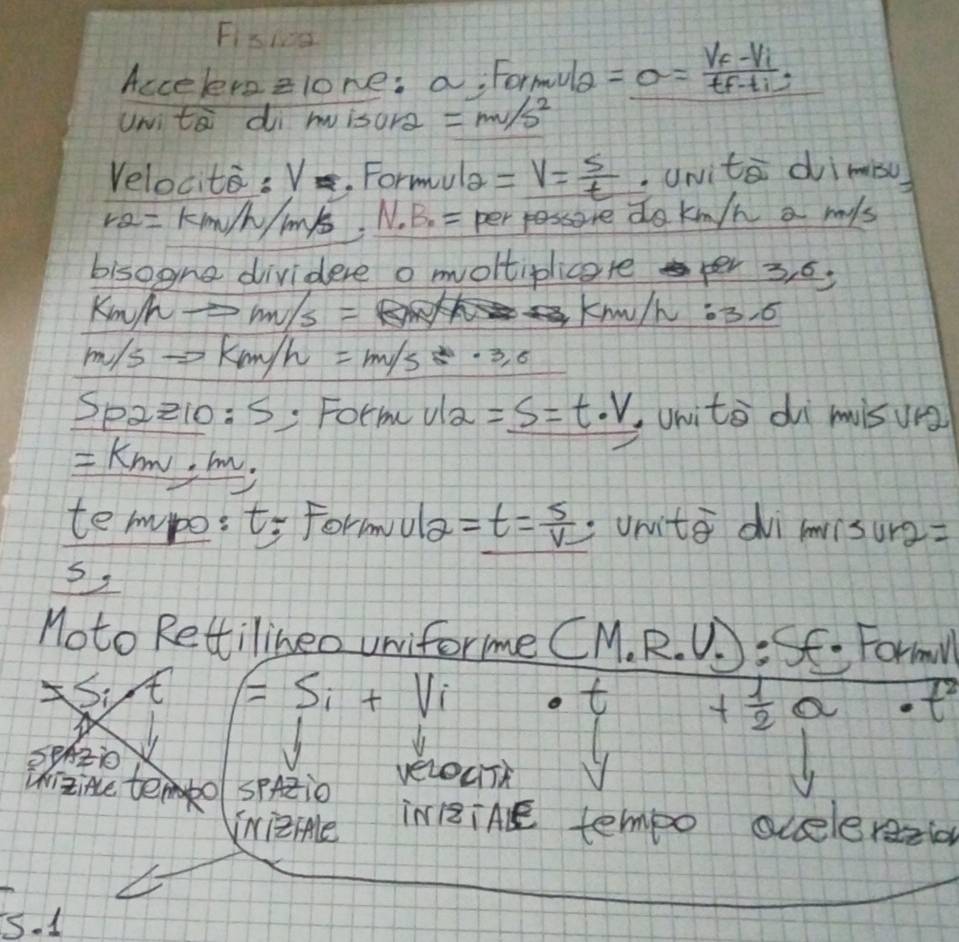 Fisica
Accelerazione: a; Formula = a = Vf - Vi / tf - ti;
unità di misura = m/s²
Velocità: V. Formula = V = s/t. unità di misu
ra = km/h/m/s. N.B. = per passare da km/h a m/s
bisogna dividere o moltiplicare per 3,6;
Km/h → m/s = km/h : 3,6
m/s → Km/h = m/s · 3,6
Spazio: S; Formula = S = t · V, unità di misura
= Km, m;
tempo: t; Formula = t = s/v; unità di misura =
s;
Moto Rettilineo uniforme (M.R.U.): Sf. Formul
= Si · t = Si + Vi · t + 1/2 a · t²
SPAZIO INIZIALE tempo SPAZIO INIZIALE VELOCITÀ INIZIALE tempo accelerazion
S.1